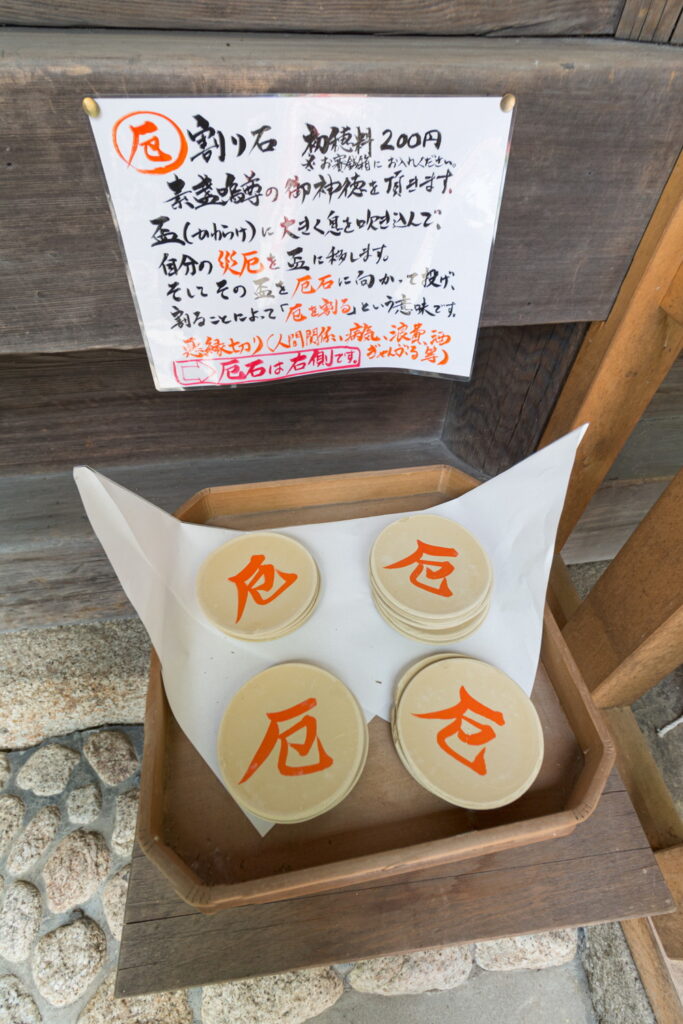 厄割り石 初穂料200円
※お賽銭箱にお入れください。
素盞嗚尊の御神徳を頂きます。
盃(かわらけ)に大きく息を吹き込んで、
自分の災厄を盃に移します。
そしてその盃を厄石に向かって投げ、
割ることによって「厄を割る」という意味です。
悪縁切り(人間関係、病気、浪費、酒
ぎゃんぶる等)
厄石は右側です。
厄
厄
厄
厄